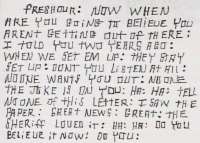 FRESHOUR: NOW WHEN
ARE YOU GOING TO BELIEVE YOU
ARENT GETTING OUT OF THERE:
I TOLD YOU TWO YEARS AGO:
WHEN WE SET EM UP: THEY STAY
SET UP: DONT YOU LISTEN AT ALL:
NOONE WANTS YOU OUT: NOONE
THE JOKE IS ON YOU: HA: HA: TELL
NOONE OF THIS LETTER: I SAW THE
PAPER: GREAT NEWS: GREAT: THE
SHERIFF LOVED IT: HA: HA: DO YOU
BELIEVE IT NOW: DO YOU: